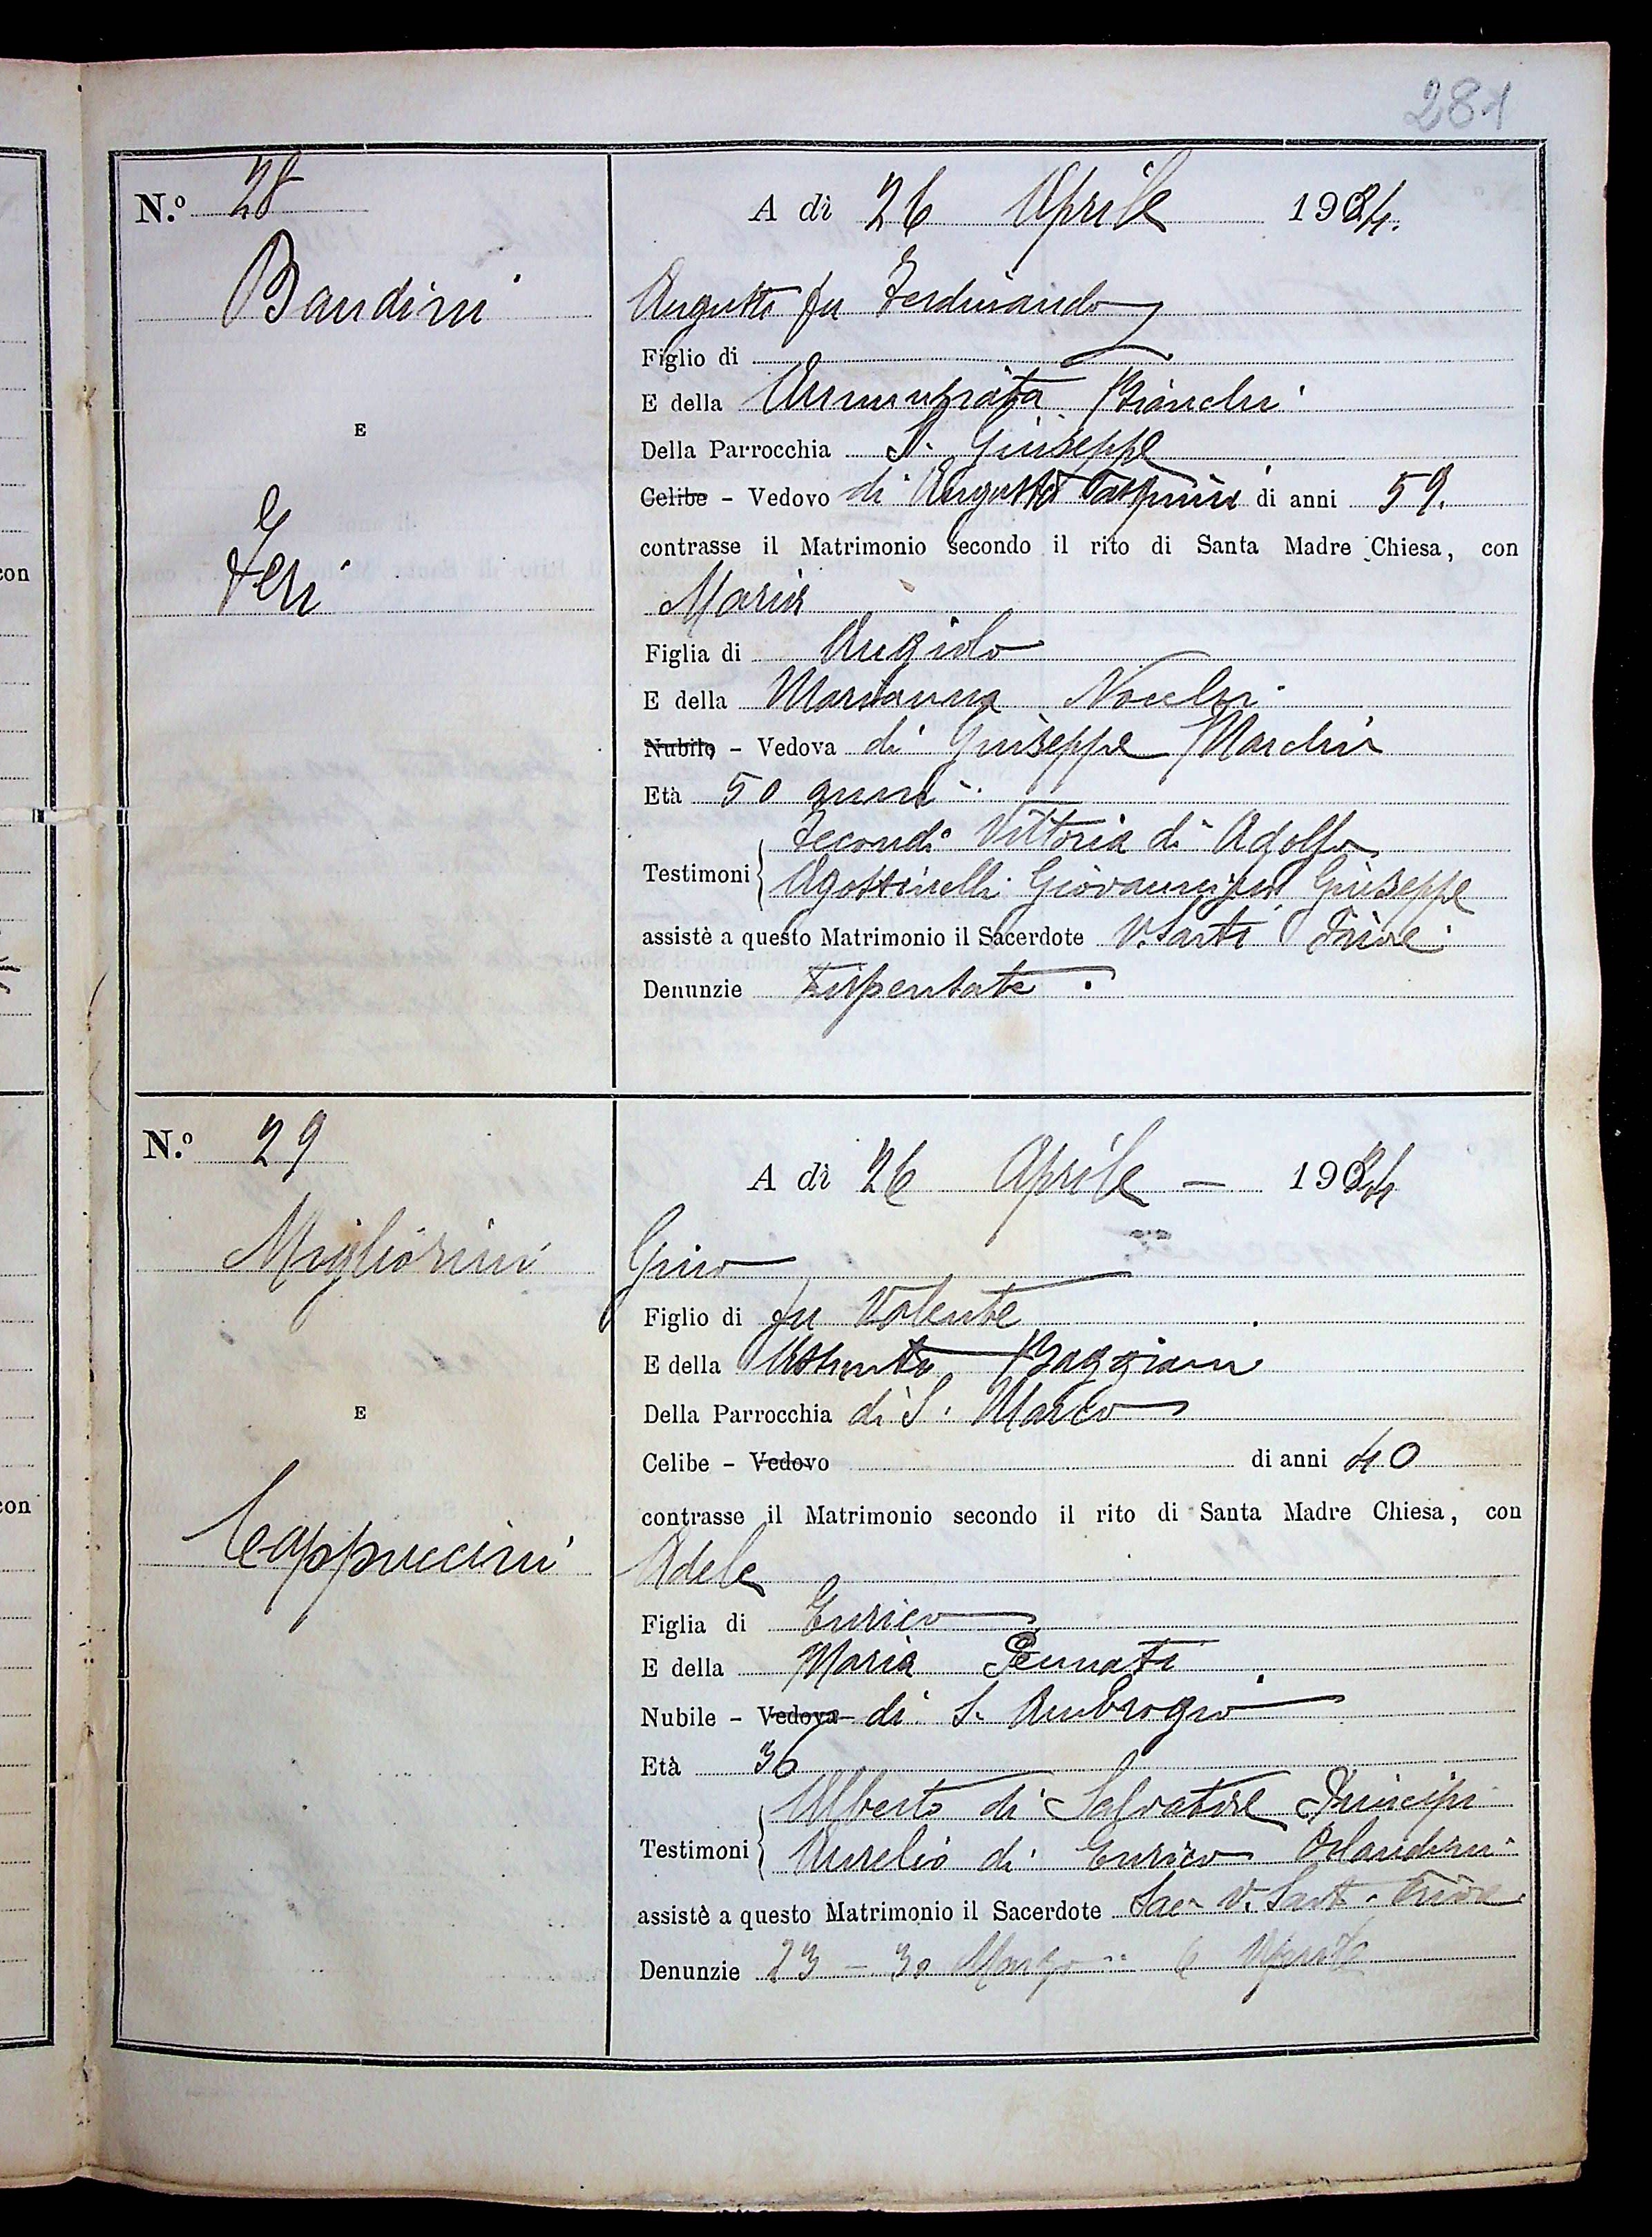 281
N.º 28
Bandini
E
Feri
A dì 26 Aprile 1924.
Augusto fu Ferdinando
Figlio di
E della Annunziata Bianchi
Della Parrocchia S. Giuseppe
Celibe - Vedovo di Augusta di anni 59.
contrasse il Matrimonio secondo il rito di Santa Madre Chiesa, con
Maria
Figlia di Angiolo
E della Marianna Nocchi
Nubile - Vedova di Giuseppe Marchi
Età 50 anni
Secondi Vittoria di Adolfo
Testimoni
Agostinelli Giovanni fu Giuseppe
assistè a questo Matrimonio il Sacerdote V. Sarti Priore
Denunzie Dispensate.
N.º 29
Migliorini
E
Cappuccini
A dì 26 Aprile — 1924
Gino
Figlio di fu Valente
E della Assunta Baggiani
Della Parrocchia di S. Marco
Celibe - Vedovo di anni 40
contrasse il Matrimonio secondo il rito di Santa Madre Chiesa, con
Adele
Figlia di Enrico
E della Maria Pennati
Nubile - Vedova di S. Ambrogio
Età 36
Alberto di Salvatore Principi
Testimoni
Aurelio di Enrico Orlandini
assistè a questo Matrimonio il Sacerdote Sac. V. Sarti Priore
Denunzie 23 - 30 Marzo - 6 Aprile
con
con